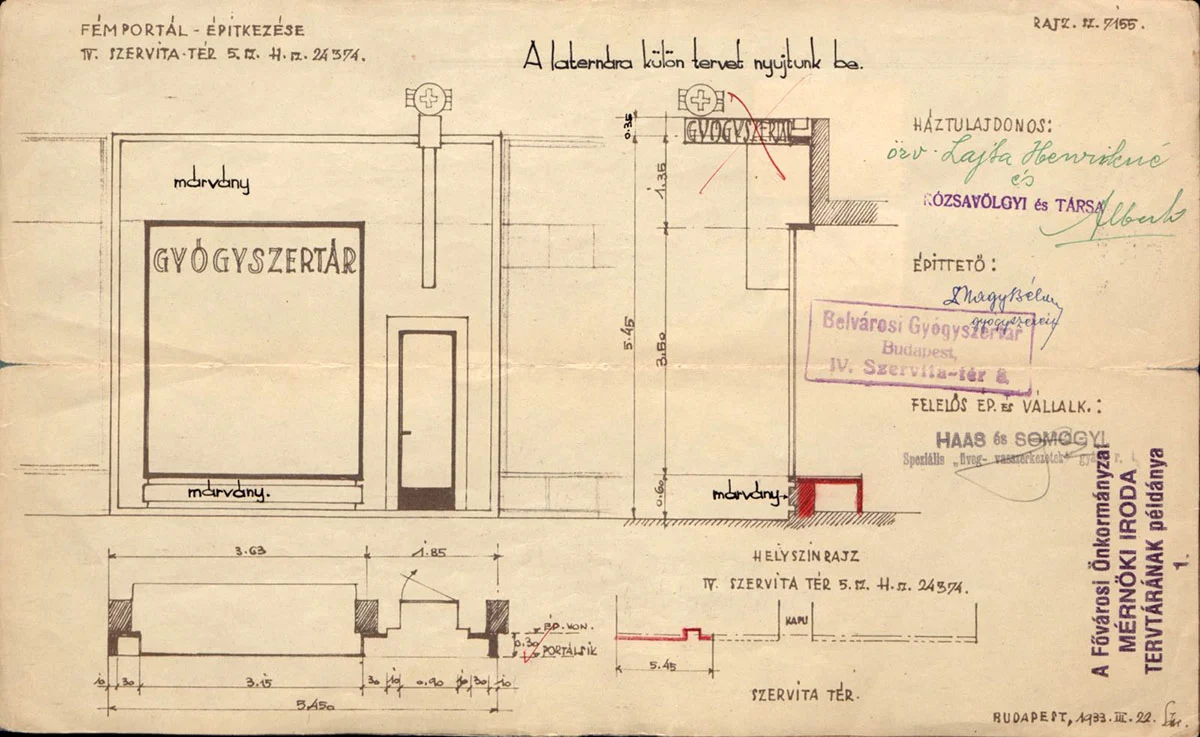 FÉMPORTÁL - ÉPITKEZÉSE
IV. SZERVITA-TÉR 5. SZ. H. SZ. 24374.
RAJZ. SZ. 7155.
A laternára külön tervet nyujtunk be.
márvány
GYÓGYSZERTÁR
márvány.
GYÓGYSZERTÁR
0.35
1.35
5.45
3.50
0.60
márvány
HÁZTULAJDONOS:
özv. Lajta Henrikné
és
RÓZSAVÖLGYI és TÁRSA
Albert
ÉPITTETŐ:
Nagy Béla
gyógyszerész
Belvárosi Gyógyszertár
Budapest,
IV. Szervita-tér 8.
FELELŐS ÉP. ÉS VÁLLALK.:
HAAS és SOMOGYI
Speziális „üveg- vasszerkezetek"
A Fővárosi Önkormányzat
MÉRNÖKI IRODA
TERVTÁRÁNAK példánya
1.
3.63
1.85
ÉP. VON.
0.30
PORTÁLSÍK
10
30
3.15
30
10
0.90
10
30
10
5.450
HELYSZINRAJZ
IV. SZERVITA TÉR 5. SZ. H. SZ. 24374.
KAPU
5.45
SZERVITA TÉR.
BUDAPEST, 1933. III. 22.